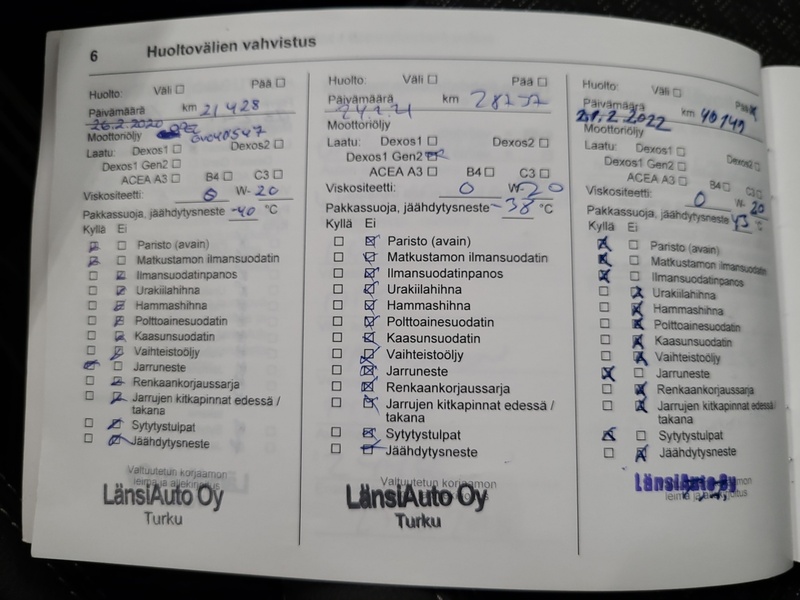 6 Huoltovälien vahvistus
Huolto: Väli Pää
Päivämäärä km 21428
26.2.2020
Moottoriöljy
Laatu: Dexos1 Dexos2
Dexos1 Gen2
ACEA A3 B4 C3
Viskositeetti: 0 W- 20
Pakkassuoja, jäähdytysneste -40 °C
Kyllä Ei
Paristo (avain)
Matkustamon ilmansuodatin
Ilmansuodatinpanos
Urakiilahihna
Hammashihna
Polttoainesuodatin
Kaasunsuodatin
Vaihteistoöljy
Jarruneste
Renkaankorjaussarja
Jarrujen kitkapinnat edessä /
takana
Sytytystulpat
Jäähdytysneste
Valtuutetun korjaamon
leima ja allekirjoitus
LänsiAuto Oy
Turku
Huolto: Väli Pää
Päivämäärä km
24.2.21
Moottoriöljy
Laatu: Dexos1 Dexos2
Dexos1 Gen2
ACEA A3 B4 C3
Viskositeetti: 0 W- 20
Pakkassuoja, jäähdytysneste -38 °C
Kyllä Ei
Paristo (avain)
Matkustamon ilmansuodatin
Ilmansuodatinpanos
Urakiilahihna
Hammashihna
Polttoainesuodatin
Kaasunsuodatin
Vaihteistoöljy
Jarruneste
Renkaankorjaussarja
Jarrujen kitkapinnat edessä /
takana
Sytytystulpat
Jäähdytysneste
Valtuutetun korjaamon
LänsiAuto Oy
Turku
Huolto: Väli Pää
Päivämäärä km 40140
2.2022
Moottoriöljy
Laatu: Dexos1 Dexos2
Dexos1 Gen2
ACEA A3 B4 C3
Viskositeetti: 0 W- 20
Pakkassuoja, jäähdytysneste 43 °C
Kyllä Ei
Paristo (avain)
Matkustamon ilmansuodatin
Ilmansuodatinpanos
Urakiilahihna
Hammashihna
Polttoainesuodatin
Kaasunsuodatin
Vaihteistoöljy
Jarruneste
Renkaankorjaussarja
Jarrujen kitkapinnat edessä /
takana
Sytytystulpat
Jäähdytysneste
LänsiAuto Oy
leima ja allekirjoitus